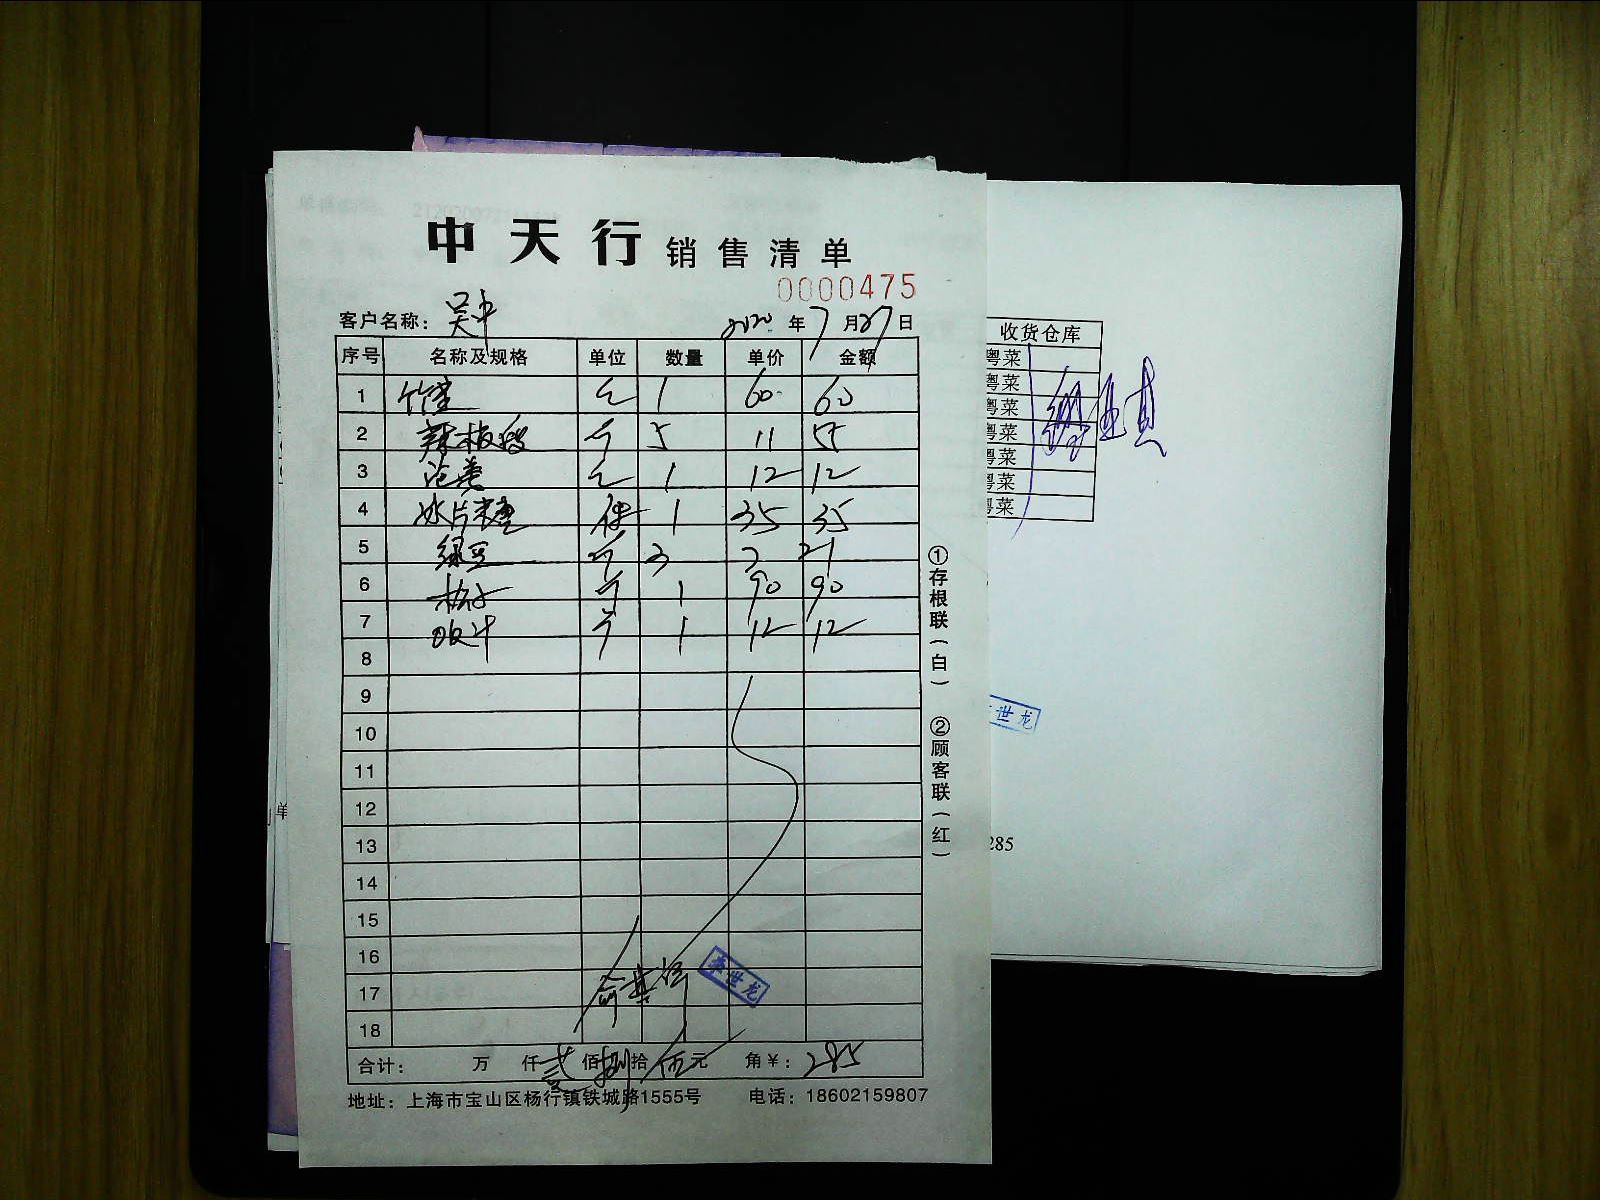 中天行 销售清单
0000475
客户名称: 吴中 2020年7月27日
序号 名称及规格 单位 数量 单价 金额
1 1 60 60
2 5 11 55
3 1 12 12
4 冰片糖 件 1 35 35
5 绿豆 3 7 21
6 1 90 90
7 1 12 12
8
9
10
11
12
13
14
15
16
17
18
李世龙
合计: 万 仟 贰佰捌拾伍元 角¥: 285
地址: 上海市宝山区杨行镇铁城路1555号 电话: 18602159807
①存根联(白) ②顾客联(红)
收货仓库
粤菜
粤菜
粤菜
粤菜
粤菜
粤菜
粤菜
世龙
285
单